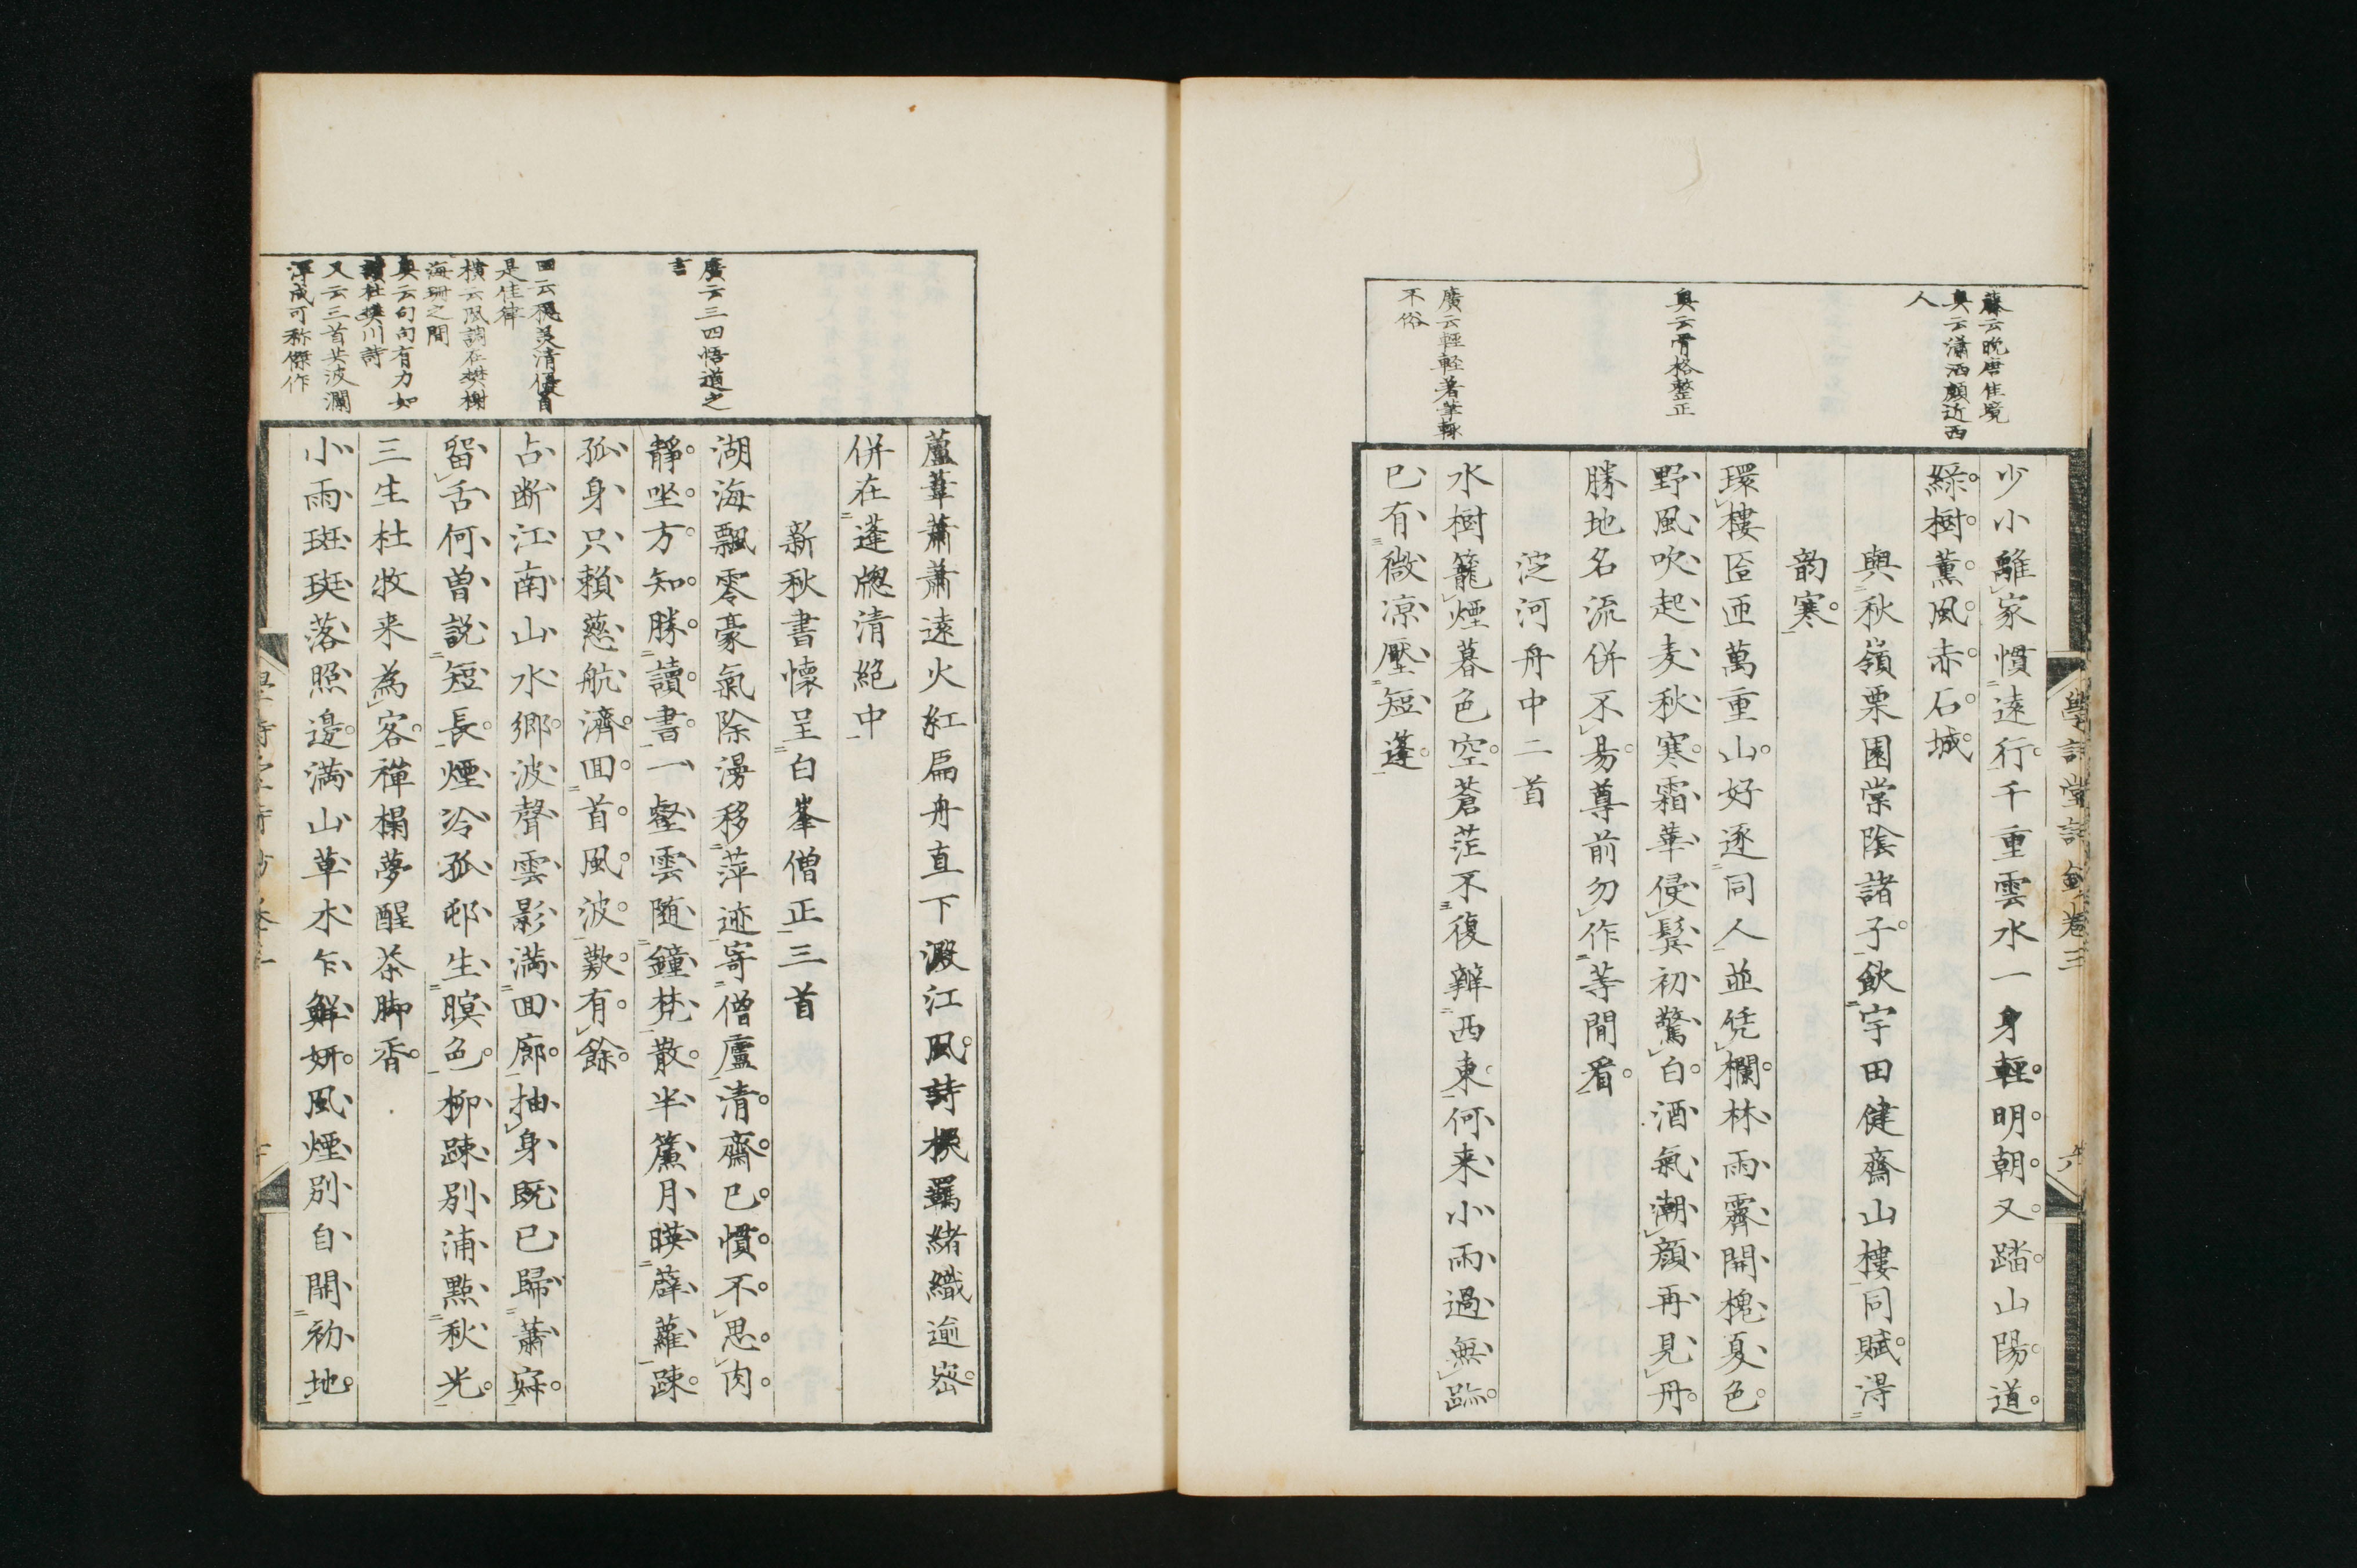 藤云晩唐佳境
奥云瀟洒頗近西
人
奥云骨格整正
廣云輕輕著筆輒
不俗
學詩堂詩鈔卷三
六
少小離家慣遠行千重雲水一身輕明朝又踏山陽道
綠樹薰風赤石城
與秋嶺栗園棠陰諸子飲宇田健齋山樓同賦得
韵寒
環樓匼匝萬重山好逐同人並凭欄林雨霽開槐夏色
野風吹起麦秋寒霜華侵鬂初驚白酒氣潮顔再見丹
勝地名流併不易尊前勿作等閒看
淀河舟中二首
水樹籠煙暮色空蒼茫不復辨西東何来小雨過無跡
已有微涼壓短蓬
廣云三四悟道之
言
是佳律
海珊之間
奥云句句有力如
讀杜樊川詩
又云三首共波瀾
渾成可称傑作
蘆葦蕭蕭遠火紅扁舟直下澱江風詩機羈緒織逾密
併在蓬牕清絶中
新秋書懐呈白峯僧正三首
湖海飄零豪氣除漫移萍迹寄僧廬清齋已慣不思肉
靜坐方知勝讀書一壑雲随鐘梵散半簾月暎薜蘿踈
孤身只頼慈航濟回首風波歎有餘
占断江南山水鄉波聲雲影満回廊抽身既已歸蕭寂
留舌何曽説短長煙冷孤邨生暝色柳踈別浦點秋光
三生杜牧来為客禅榻夢醒茶脚香
小雨斑斑落照邊満山草木乍鮮妍風煙別自開初地